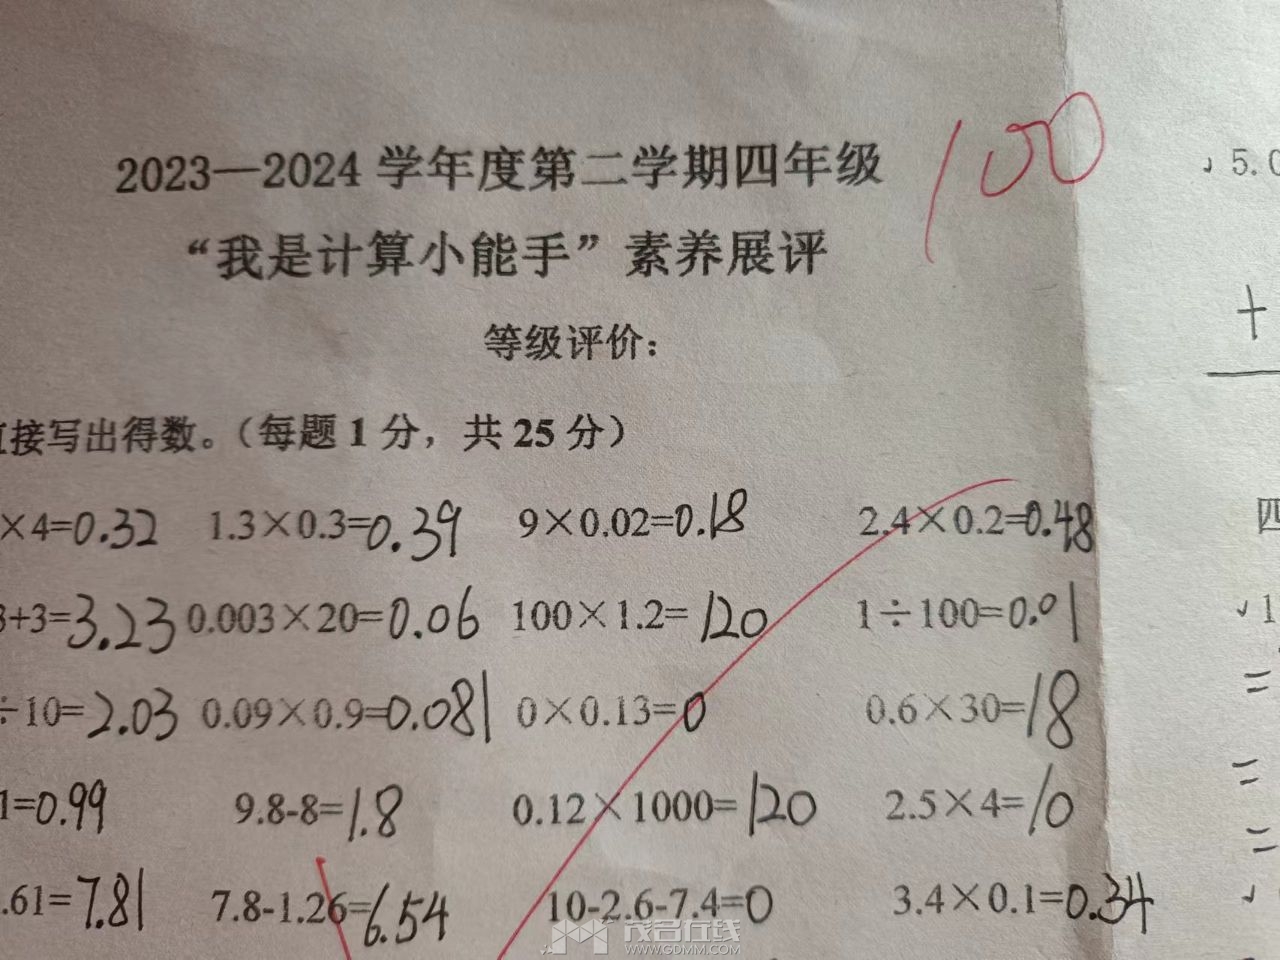 100
2023—2024 学年度第二学期四年级
“我是计算小能手”素养展评
等级评价：
接写出得数。（每题 1 分，共 25 分）
×4=0.32 1.3×0.3=0.39 9×0.02=0.18 2.4×0.2=0.48
+3=3.23 0.003×20=0.06 100×1.2=120 1÷100=0.01
÷10=2.03 0.09×0.9=0.081 0×0.13=0 0.6×30=18
1=0.99 9.8-8=1.8 0.12×1000=120 2.5×4=10
.61=7.81 7.8-1.26=6.54 10-2.6-7.4=0 3.4×0.1=0.34
✓ 5.0
+
四
✓ 1
=
=
=
✓
茂名在线
WWW.GDMM.COM